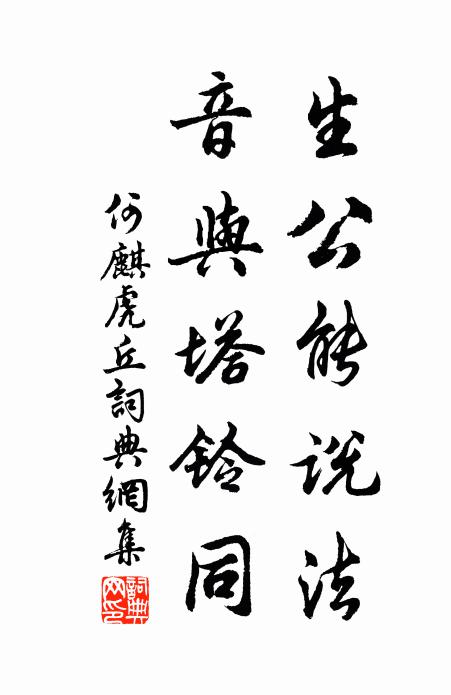 生公能说法
音與塔鈴同
何麒虎丘詞典網集
詞典
网印